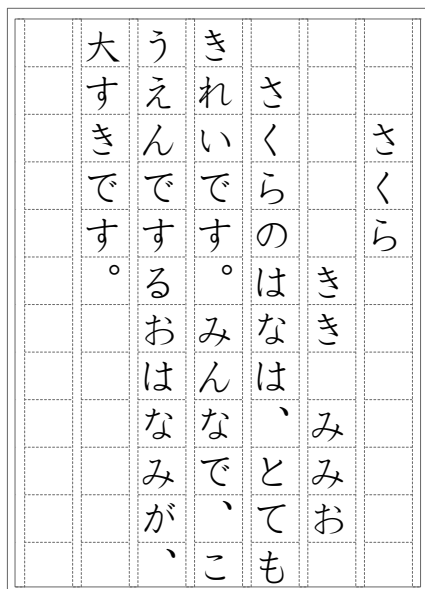 さくら
きき　みみお
さくらのはなは、とても
きれいです。みんなで、こ
うえんでするおはなみが、
大すきです。